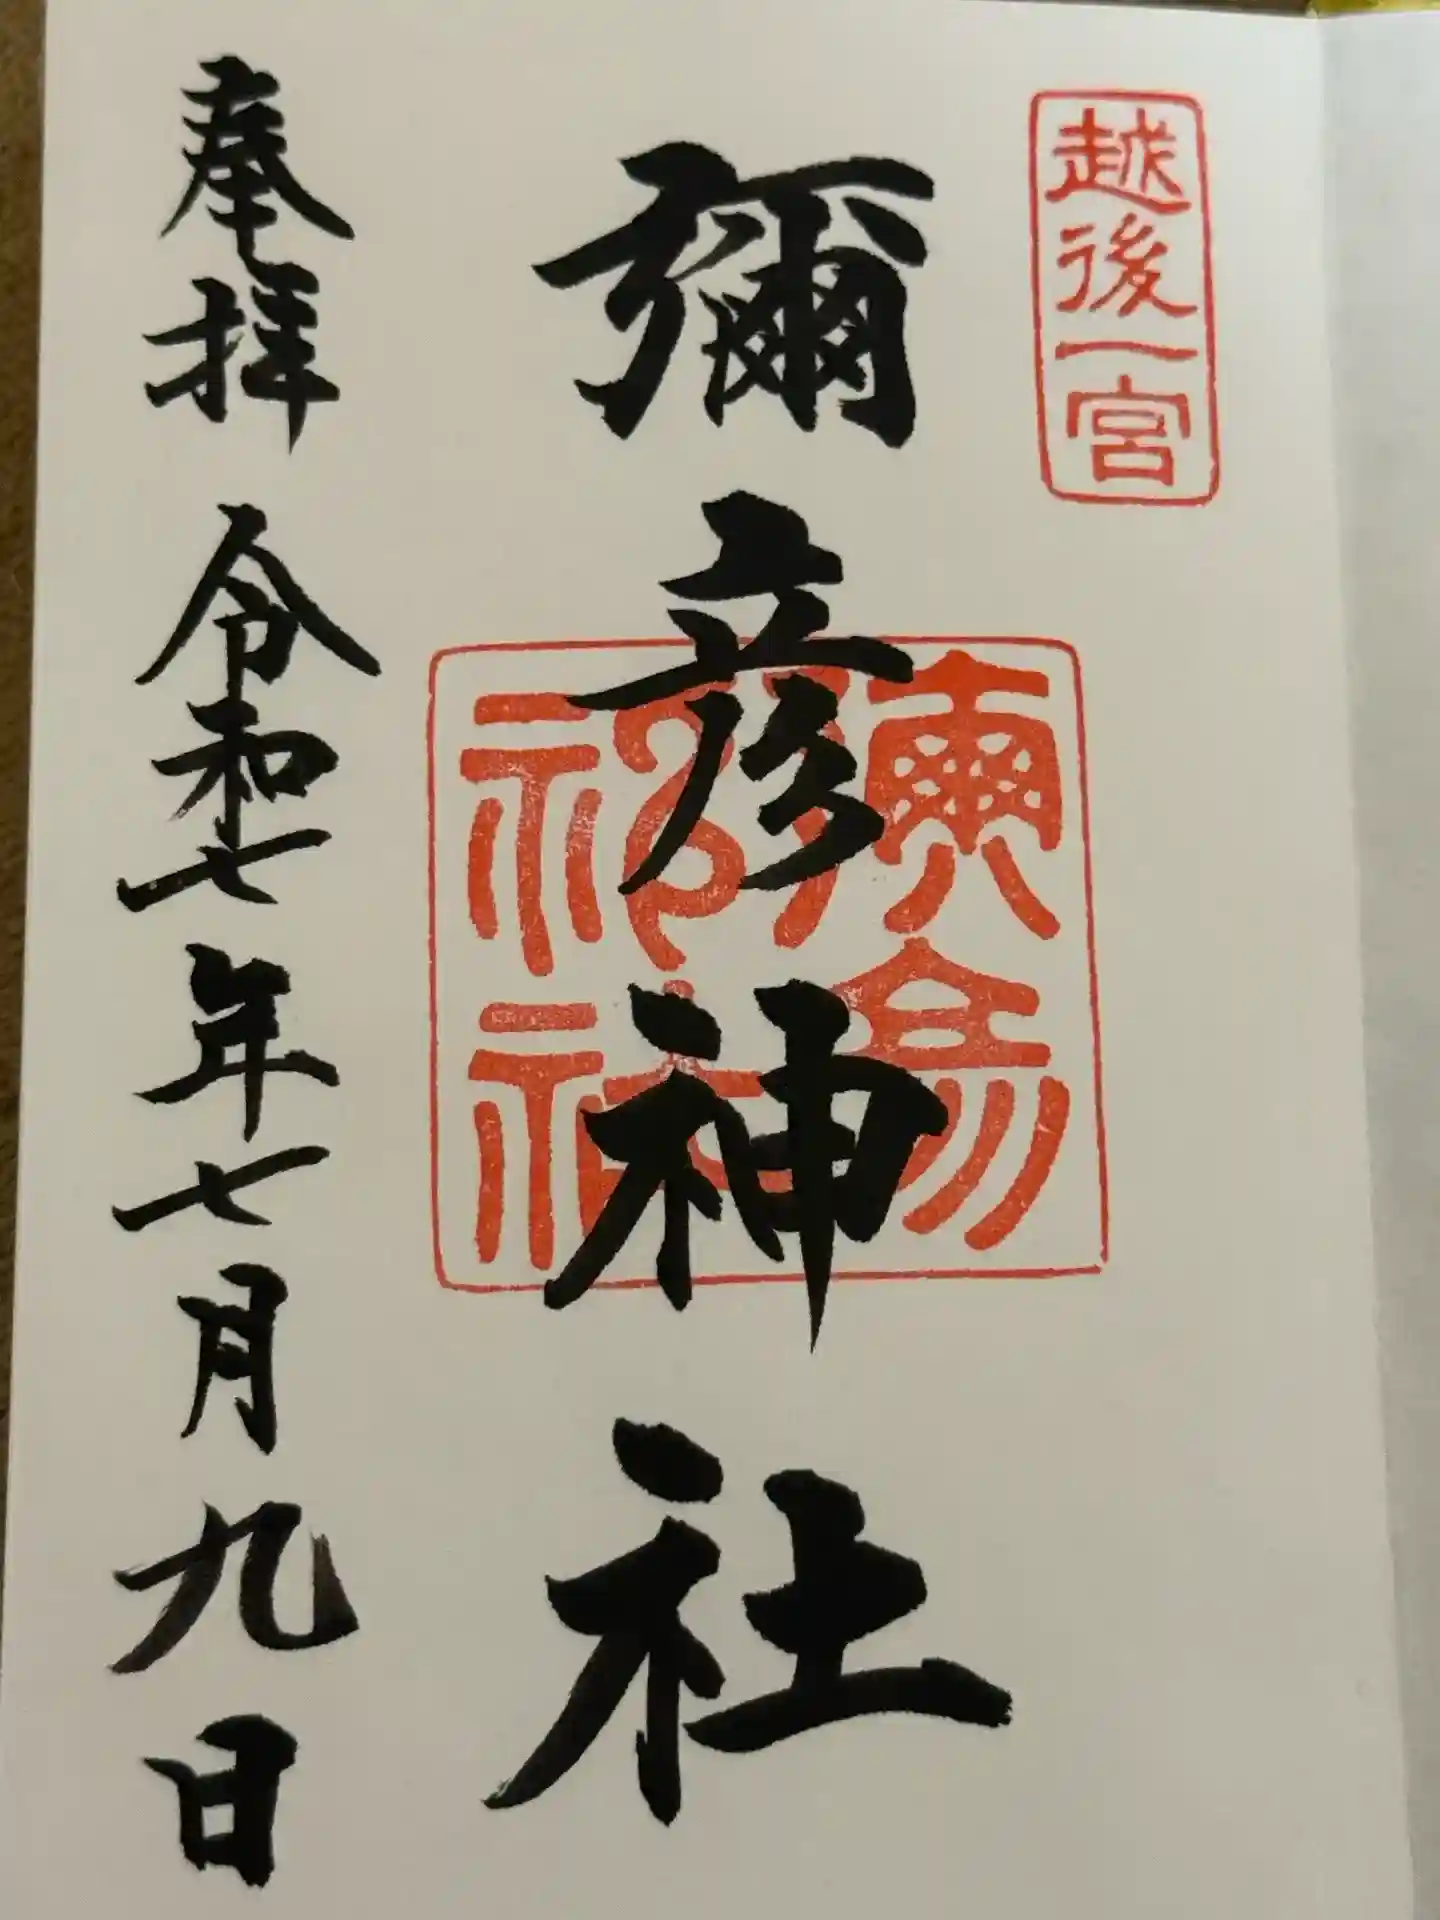 越後一宮
彌彦神社
彌彦神社
奉拝 令和七年七月九日